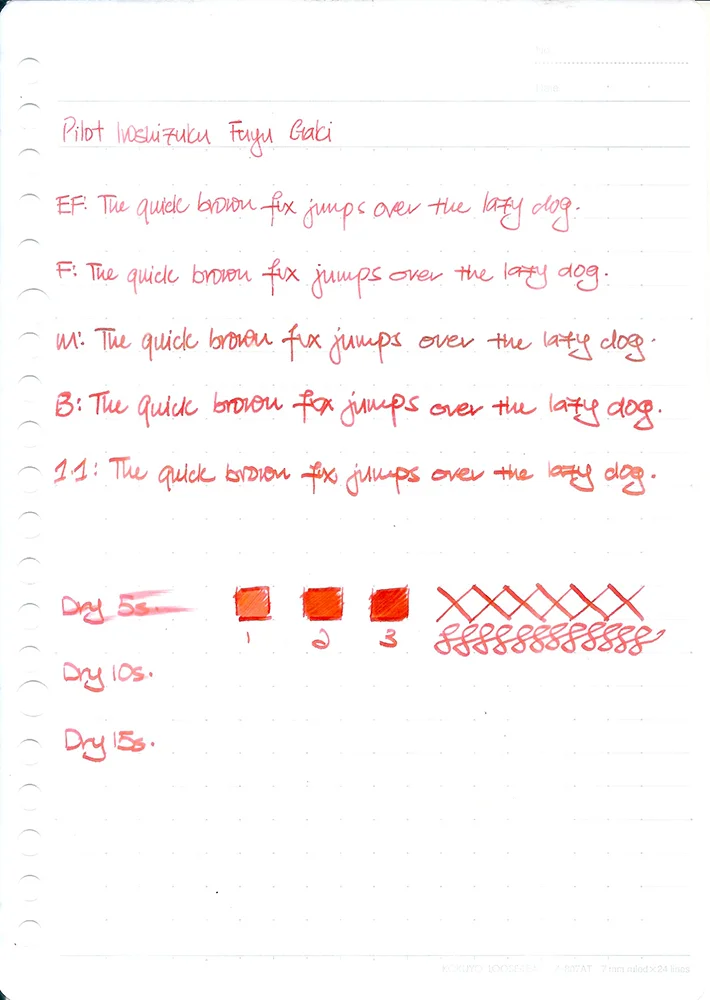 No.
Date
Pilot Iroshizuku Fuyu Gaki
EF: The quick brown fox jumps over the lazy dog.
F: The quick brown fox jumps over the lazy dog.
M: The quick brown fox jumps over the lazy dog.
B: The quick brown fox jumps over the lazy dog.
1.1: The quick brown fox jumps over the lazy dog.
Dry 5s.
1 2 3
Dry 10s.
Dry 15s.
KOKUYO LOOSELEAF 7 mm ruled × 24 lines